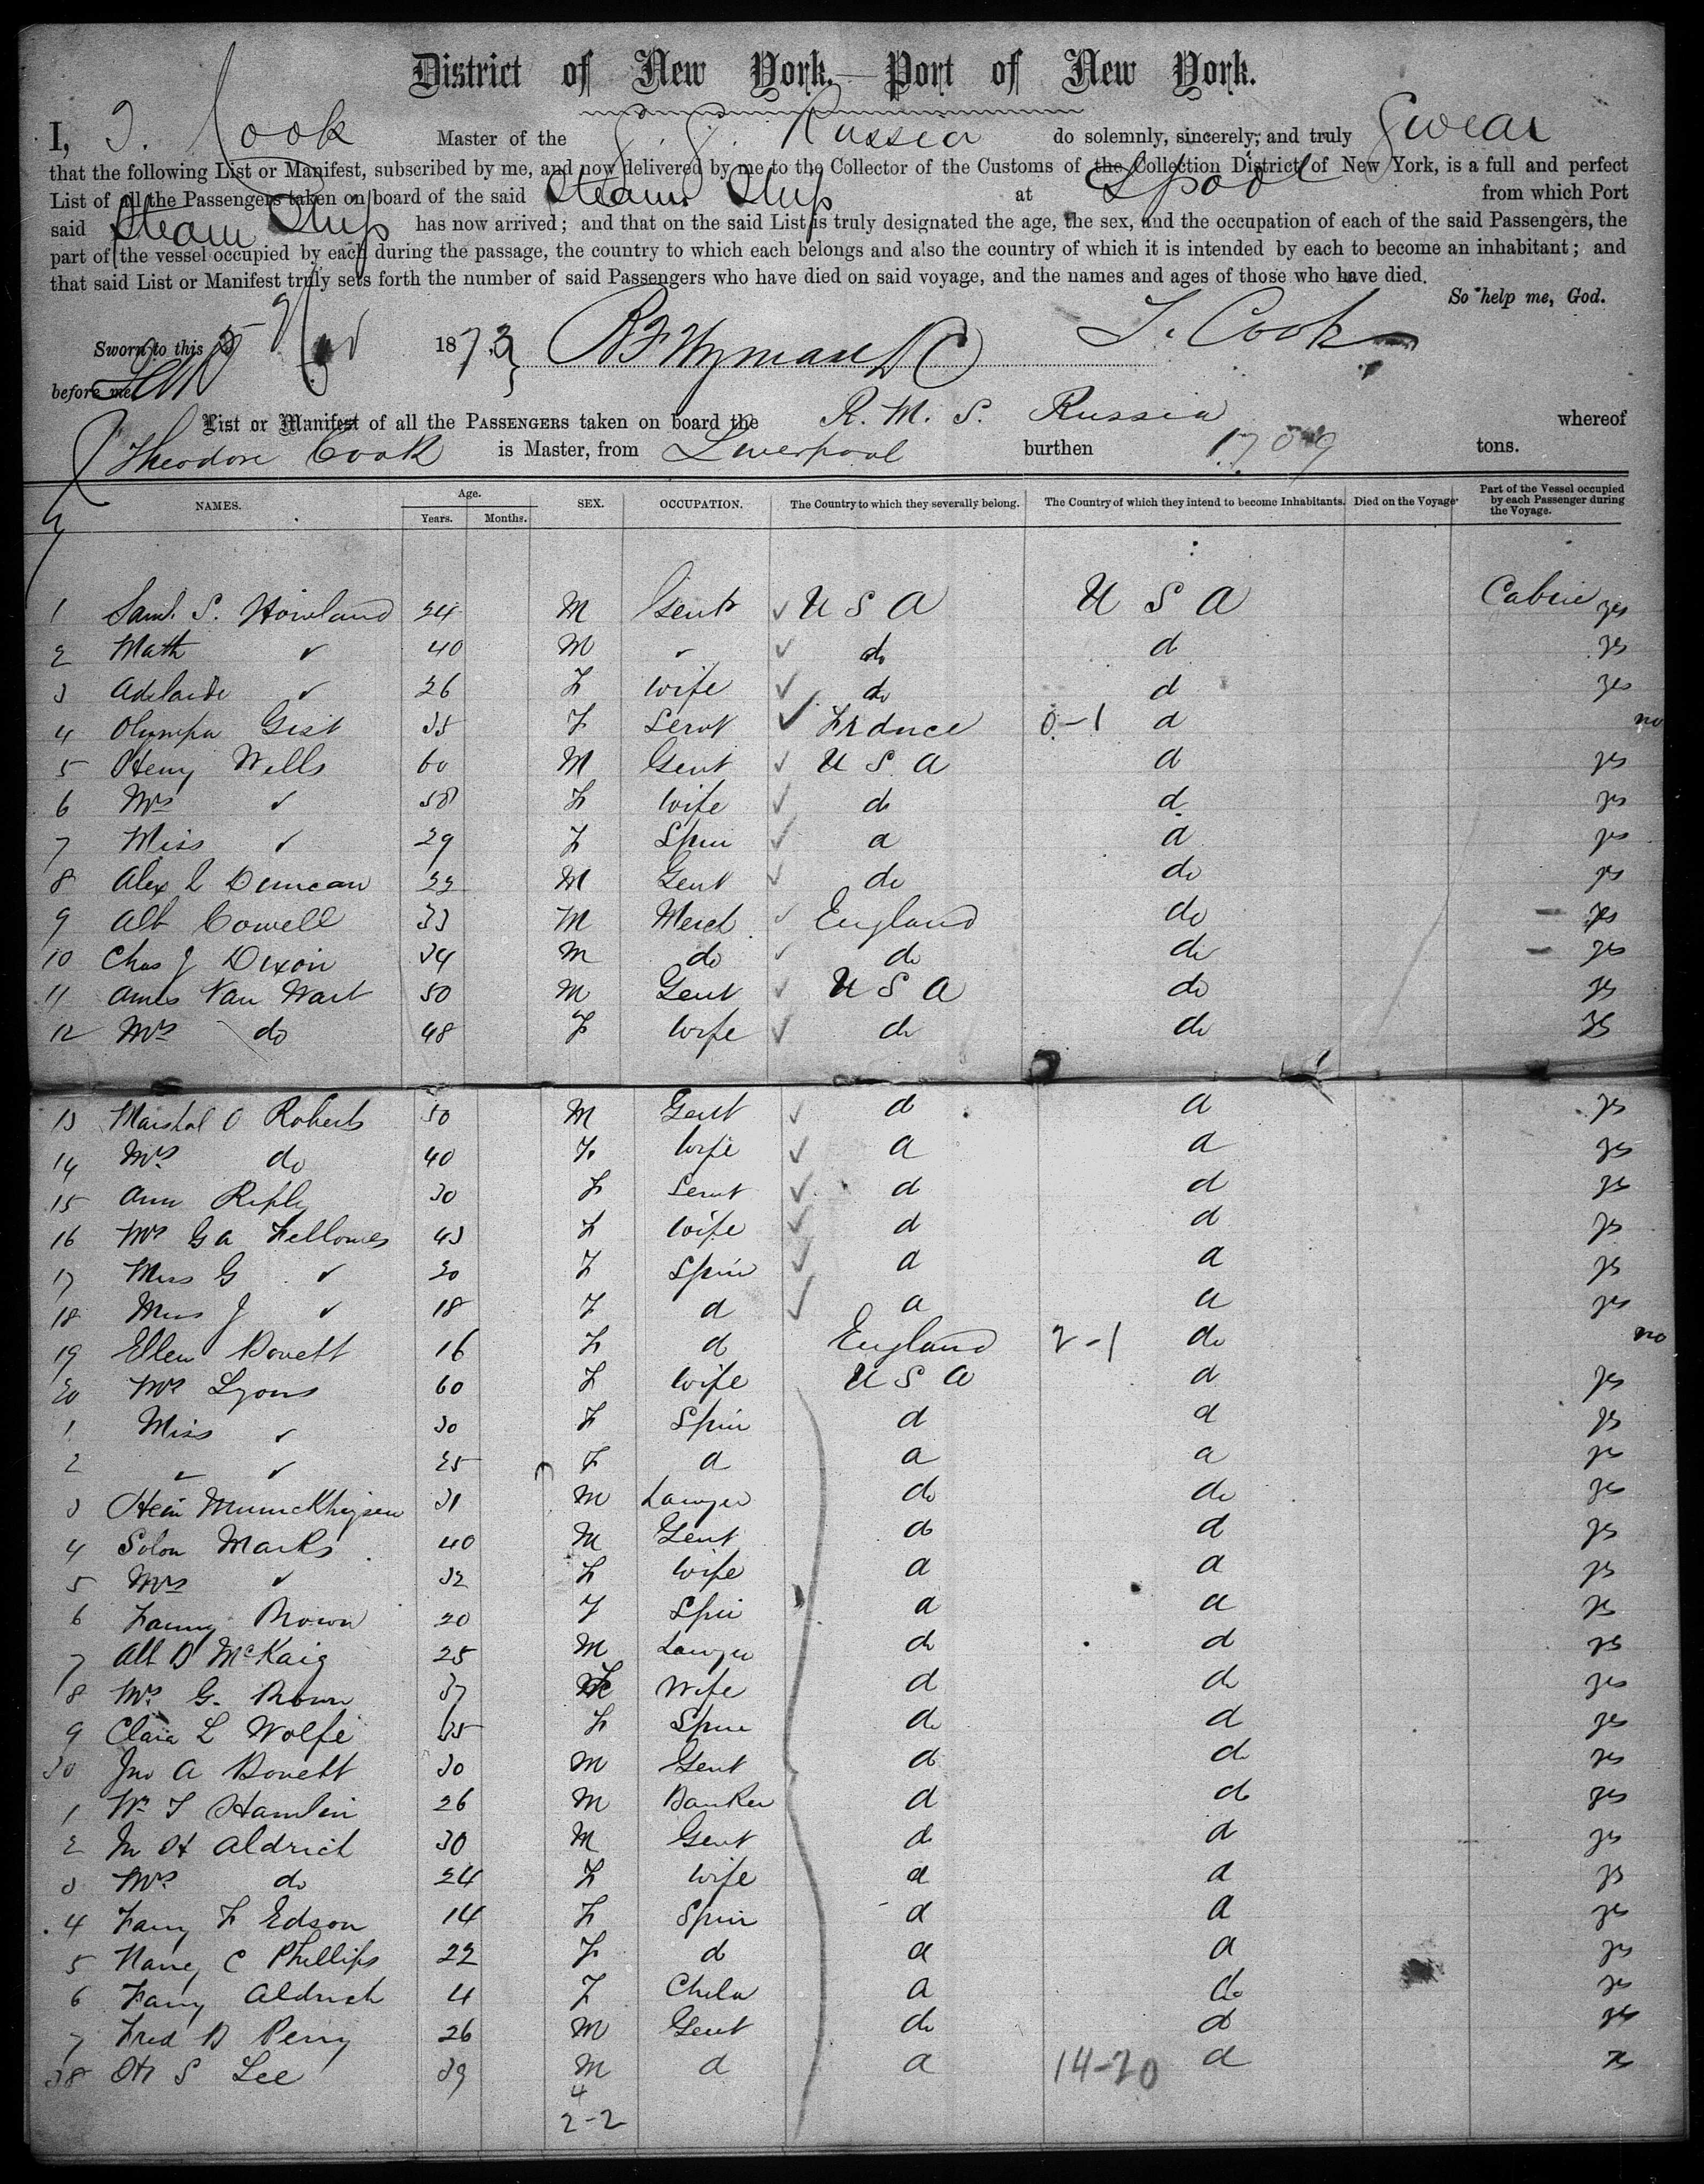 District of New York.—Port of New York.
I, T. Cook Master of the S. S. Russia do solemnly, sincerely, and truly Swear
that the following List or Manifest, subscribed by me, and now delivered by me to the Collector of the Customs of the Collection District of New York, is a full and perfect
List of all the Passengers taken on board of the said Steam Ship at Lpool from which Port
said Steam Ship has now arrived; and that on the said List is truly designated the age, the sex, and the occupation of each of the said Passengers, the
part of the vessel occupied by each during the passage, the country to which each belongs and also the country of which it is intended by each to become an inhabitant; and
that said List or Manifest truly sets forth the number of said Passengers who have died on said voyage, and the names and ages of those who have died.
So help me, God.
Sworn to this 5 Nov 1873 T. Cook
before me R F Wyman D C
List or Manifest of all the PASSENGERS taken on board the R. M. S. Russia whereof
Theodore Cook is Master, from Liverpool burthen 1709 tons.
NAMES. Age. Years. Months. SEX. OCCUPATION. The Country to which they severally belong. The Country of which they intend to become Inhabitants. Died on the Voyage Part of the Vessel occupied by each Passenger during the Voyage.
1 Saml. S. Howland 24 M Gent ✓ U S A U S A Cabin yes
2 Math ✓ 40 M ✓ ✓ do d yes
3 Adelaide ✓ 26 F wife ✓ do d yes
4 Olympa Gist 35 F Servt ✓ France 0-1 d no
5 Henry Wells 60 M Gent ✓ U S A d yes
6 Mrs ✓ 58 F wife ✓ do d yes
7 Miss ✓ 29 F Spin ✓ d d yes
8 Alex L Duncan 22 M Gent ✓ do do yes
9 Alb Cowell 33 M Merch ✓ England do yes
10 Chas J Dixon 34 M do ✓ do do yes
11 Ames Van Wart 50 M Gent ✓ U S A do yes
12 Mrs do 48 F wife ✓ do do yes
13 Marshal O Roberts 50 M Gent ✓ d d yes
14 Mrs do 40 F. wife ✓ d d yes
15 Ann Riply 30 F Servt ✓ d d yes
16 Mrs G A Fellowes 43 F wife ✓ d d yes
17 Miss G ✓ 20 F Spin ✓ d d yes
18 Miss J ✓ 18 F d ✓ d d yes
19 Ellen Bovett 16 F d England 2-1 do no
20 Mrs Lyons 60 F wife U S A d yes
1 Miss ✓ 30 F Spin d d yes
2 ✓ ✓ 25 F d d d yes
3 31 M Lawyer do do yes
4 Solon Marks 40 M Gent do d yes
5 Mrs ✓ 32 F wife d d yes
6 Fanny Brown 20 F Spin d d yes
7 Alb D McKaig 25 M Lawyer do d yes
8 Mrs. G. Brown 37 F Wife d do yes
9 Clara L Wolfe 35 F Spin do d yes
30 Jno A Bonett 30 M Gent do do yes
1 Wm T Hamlin 26 M Banker d do yes
2 M H Aldrich 30 M Gent do d yes
3 Mrs. do 24 F wife d d yes
4 Fany F Edson 14 F Spin d d yes
5 Nancy C Phillips 22 F d d d yes
6 Fany Aldrich 4 F Child d do yes
7 Fred D Perry 26 M Gent do d yes
38 S Lee 39 M d d 14-20 d yes
4
2-2